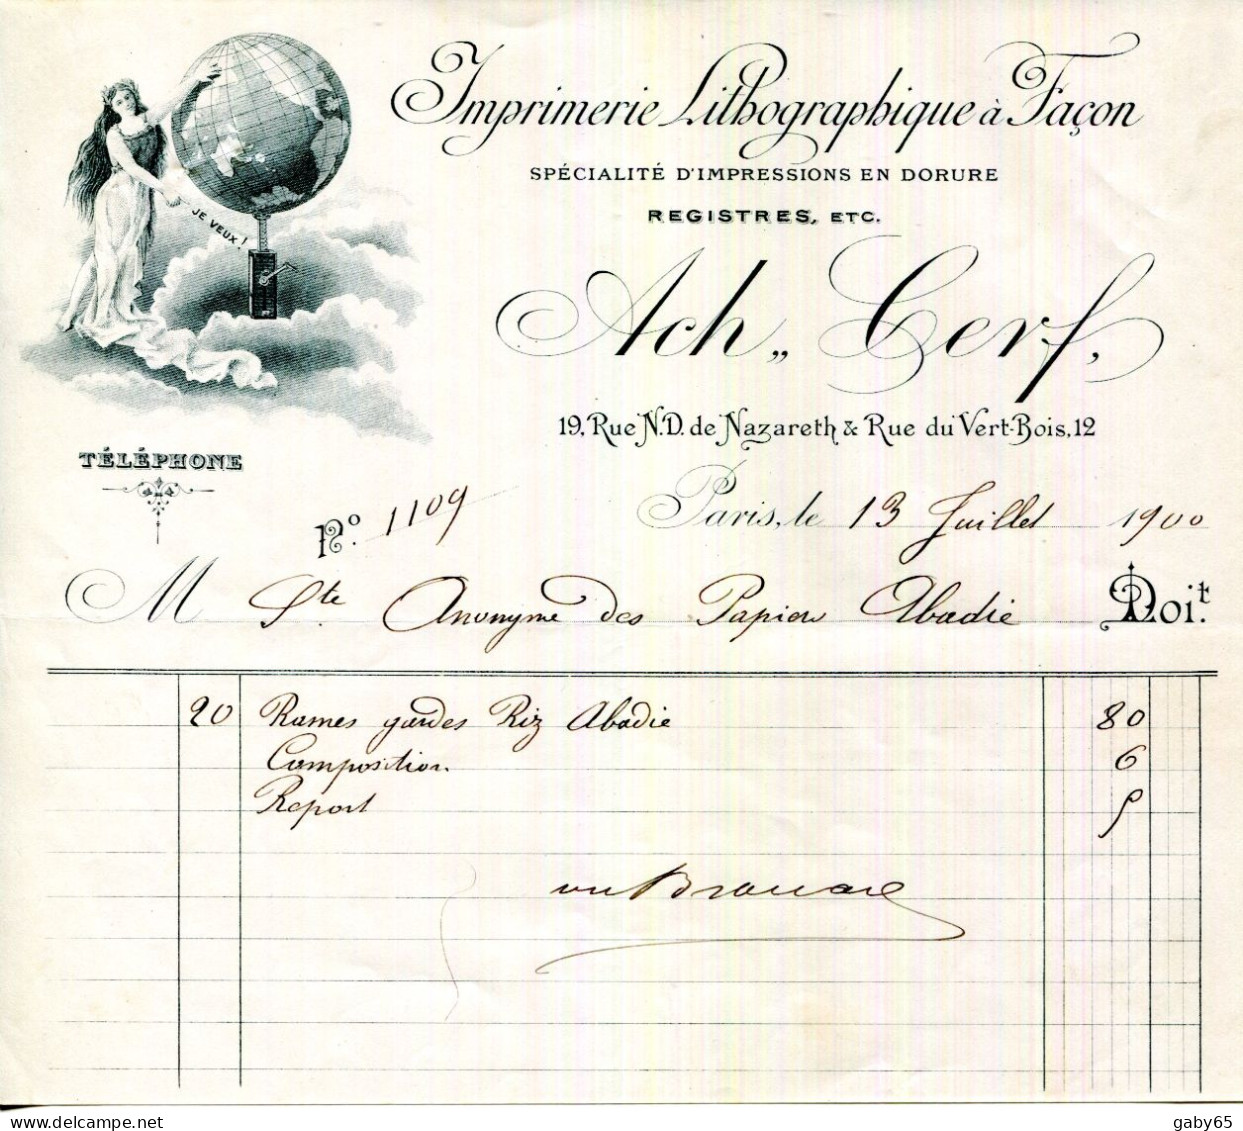 Imprimerie Lithographique à Façon
SPÉCIALITÉ D'IMPRESSIONS EN DORURE
REGISTRES, ETC.
JE VEUX!
Ach„ Cerf,
19, Rue N.D. de Nazareth & Rue du Vert-Bois, 12
TÉLÉPHONE
No. 1109
Paris, le 13 Juillet 1900
M Ste Anonyme des Papiers Abadie Doit.
20 Rames gardes Riz Abadie 80
Composition 6
Report 5
vu
gaby65